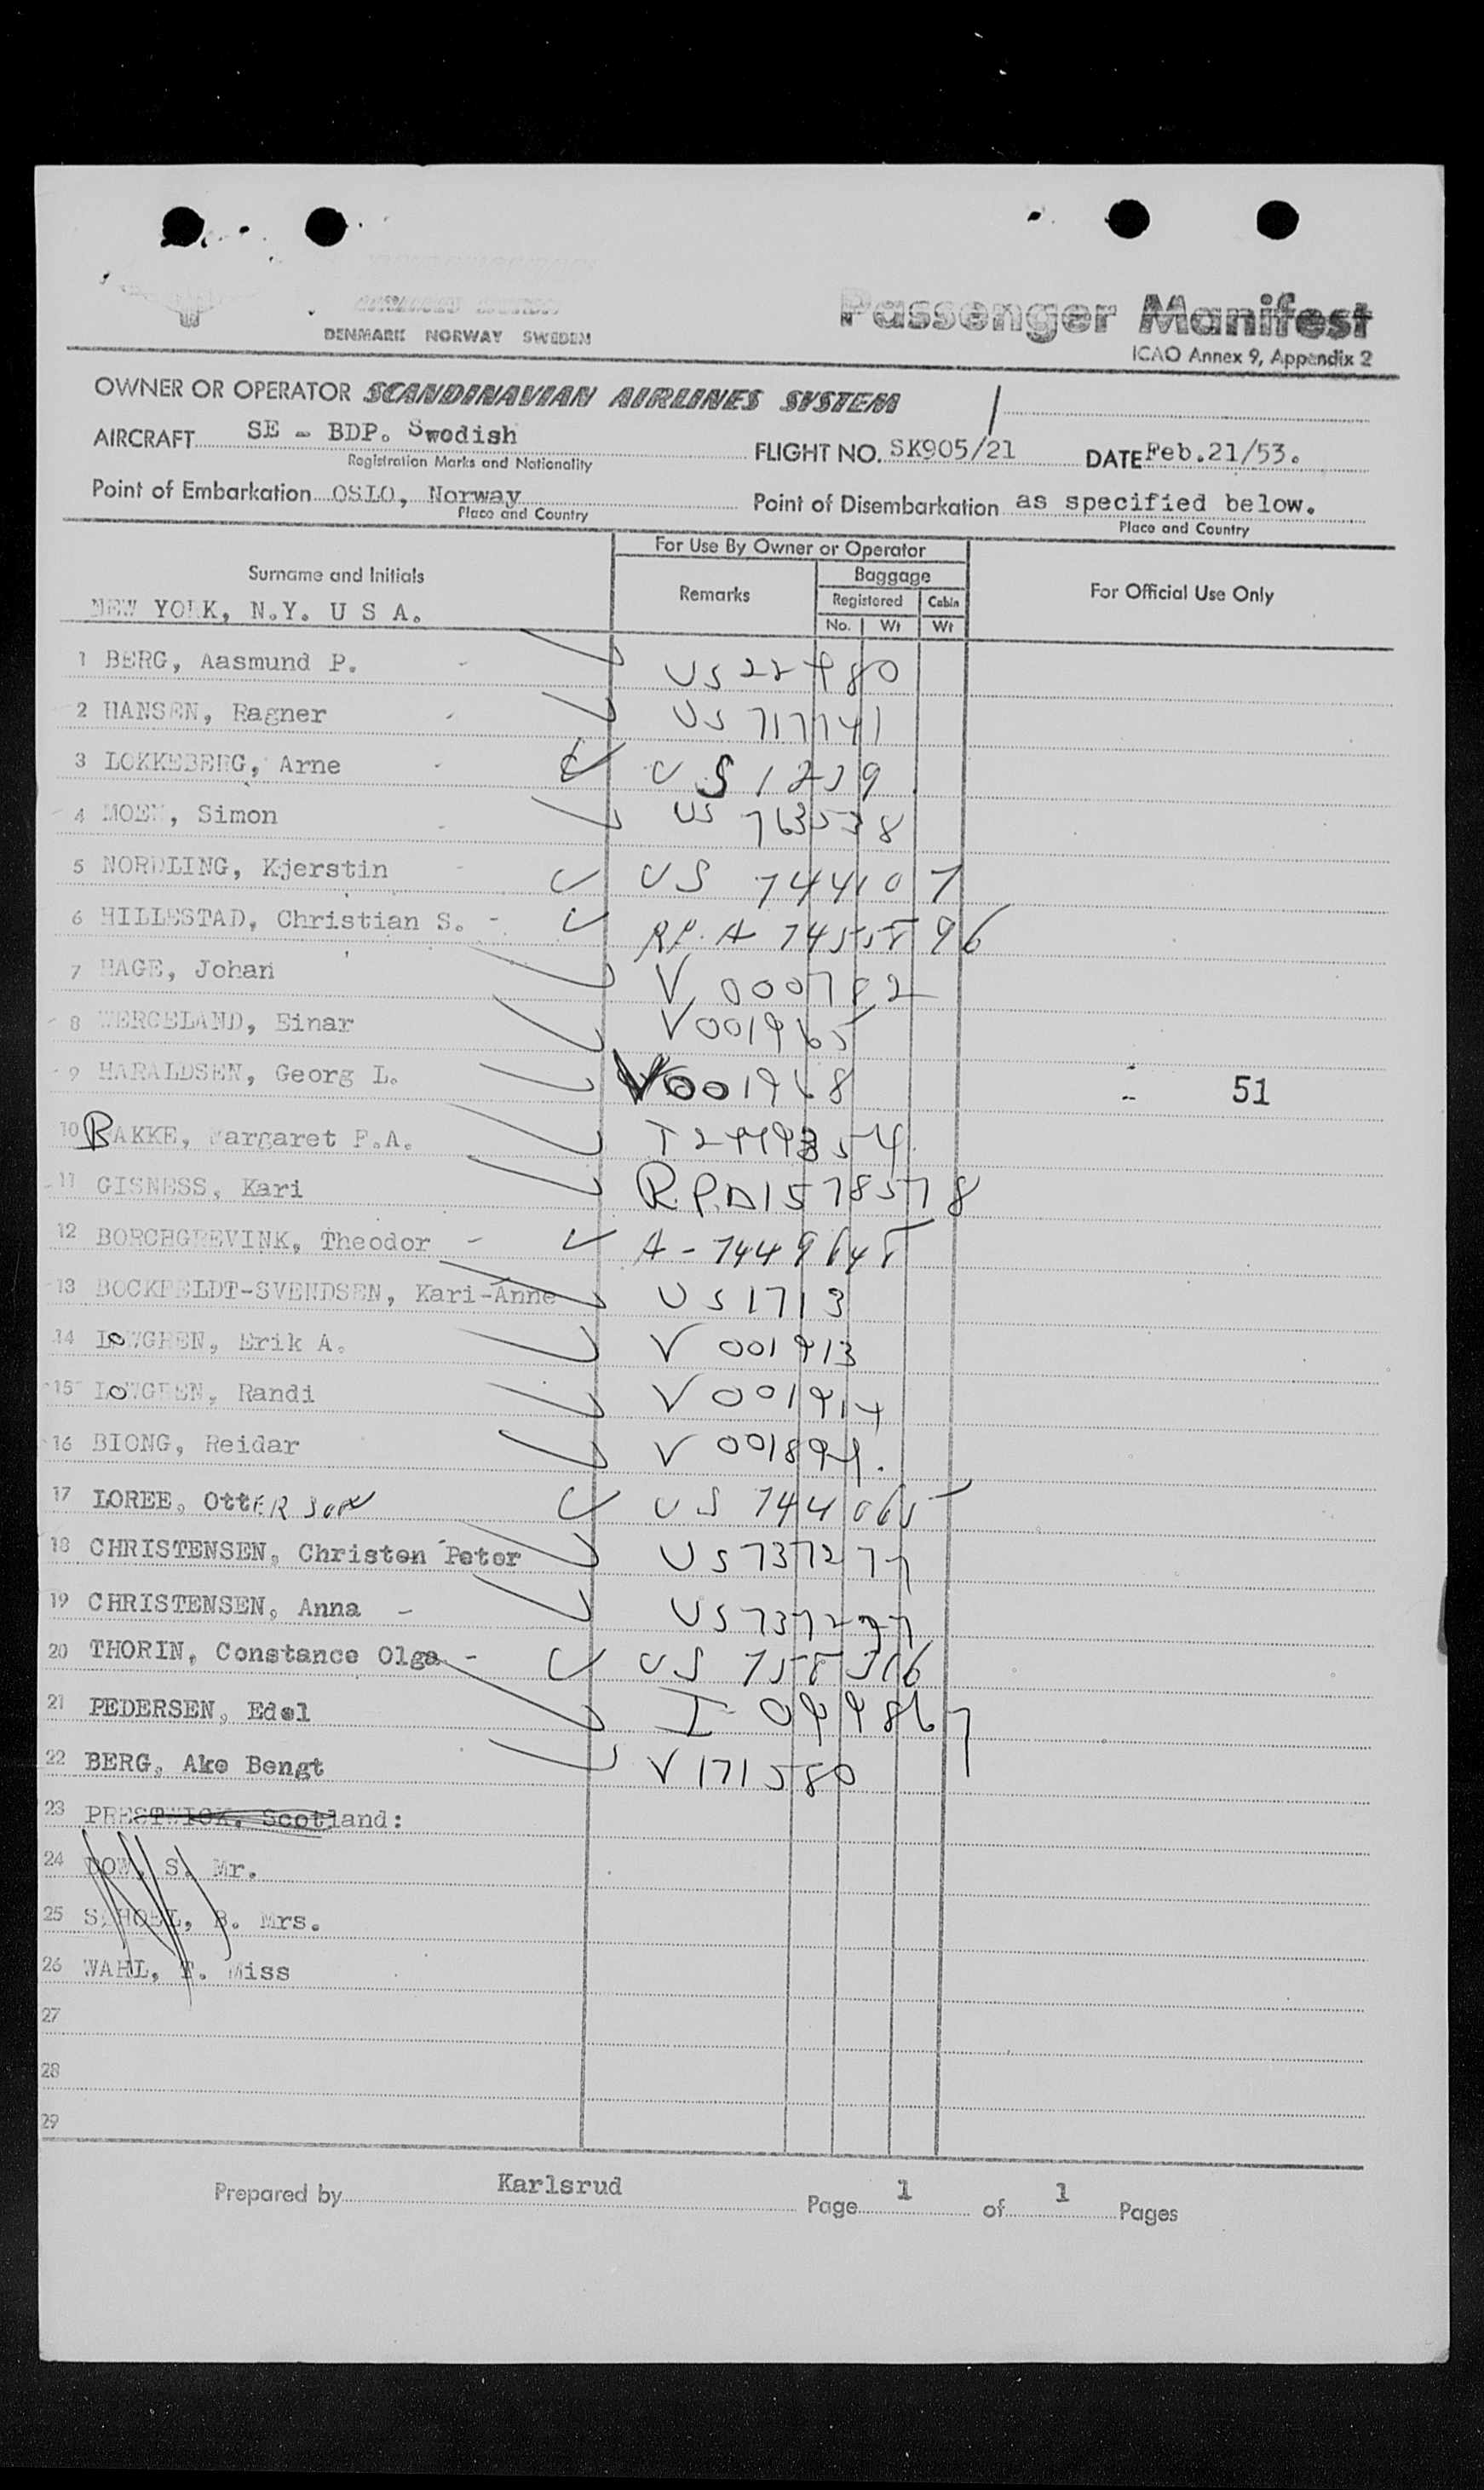 DENMARK NORWAY SWEDEN
Passenger Manifest
ICAO Annex 9, Appendix 2
OWNER OR OPERATOR SCANDINAVIAN AIRLINES SYSTEM
AIRCRAFT SE - BDP. Swedish
Registration Marks and Nationality
FLIGHT NO. SK905/21 DATE Feb.21/53.
Point of Embarkation OSLO, Norway
Place and Country
Point of Disembarkation as specified below.
Place and Country
Surname and Initials
For Use By Owner or Operator
Remarks
Baggage
Registered Cabin
No. Wt Wt
For Official Use Only
NEW YORK, N.Y. U S A.
1 BERG, Aasmund P.
2 HANSEN, Ragner US 717741
3 LOKKEBERG, Arne US 1239
4 MOEN, Simon US 763538
5 NORDLING, Kjerstin US 744107
6 HILLESTAD, Christian S.
7 HAGE, Johan V 000782
8 WERGELAND, Einar V001965
9 HARALDSEN, Georg L. V001968 51
10 BAKKE, Margaret P.A.
11 GISNESS, Kari R.P.A1578578
12 BORCHGREVINK, Theodor
13 BOCKFELDT-SVENDSEN, Kari-Anne US 1713
14 LOWGREN, Erik A. V 001913
15 LOWGREN, Randi V 001914
16 BIONG, Reidar V 001894.
17 LOREE, OttERSON US 744065
18 CHRISTENSEN, Christen Peter US737277
19 CHRISTENSEN, Anna US737277
20 THORIN, Constance Olga US 758316
21 PEDERSEN, Edel I-099867
22 BERG, Ake Bengt V171580
23 PRESTWICK, Scotland:
24 DOW, S. Mr.
25 B. Mrs.
26 WAHL, F. Miss
27
28
29
Prepared by Karlsrud Page 1 of 1 Pages